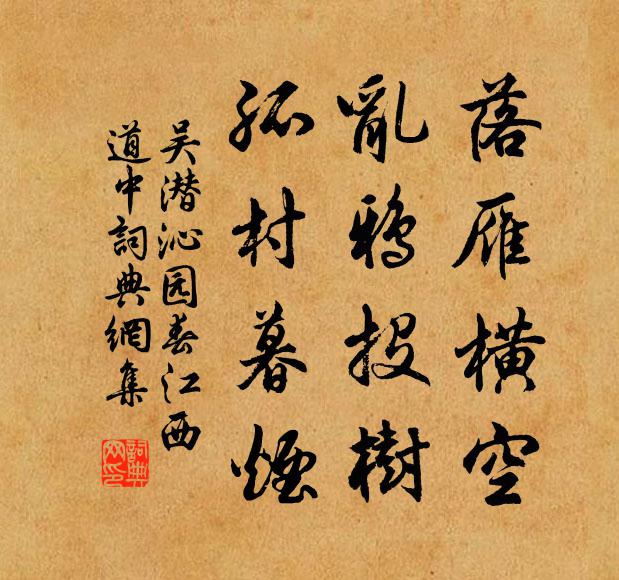 落雁橫空
亂鴉投樹
孤村暮煙
吴潜沁园春江西
道中詞典網集
詞典网印